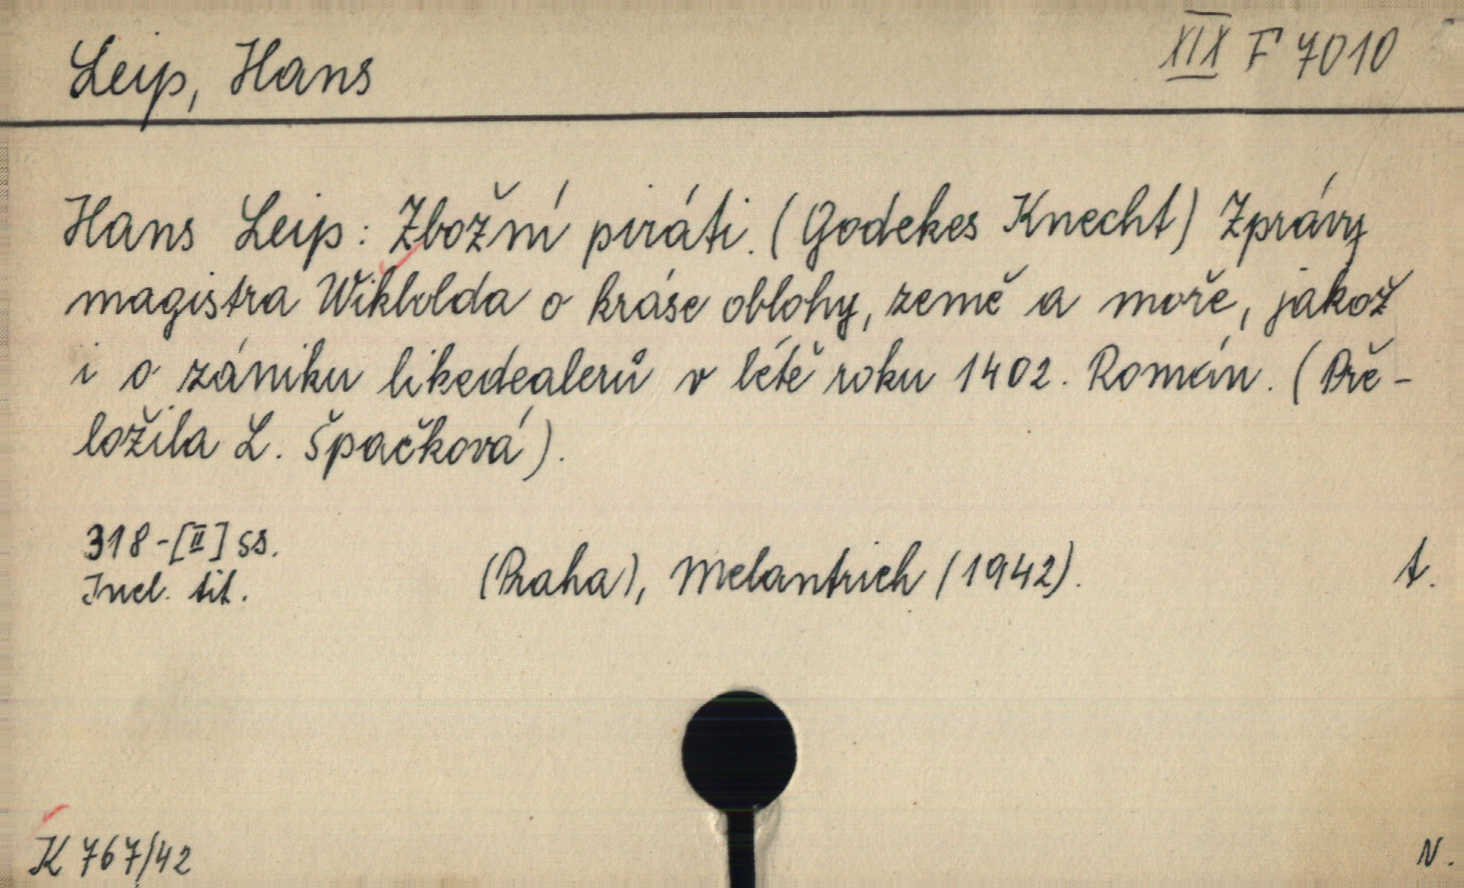 Leip, Hans
XIX F 7010
Hans Leip: Zbožní piráti. (Godekes Knecht) Zprávy
magistra Wikbolda o kráse oblohy, země a moře, jakož
i o zániku likedealerů v létě roku 1402. Román. (Pře-
ložila L. Špačková).
318-[II] ss.
Incl. tit.
(Praha), Melantrich (1942).
t.
K 767/42
N.